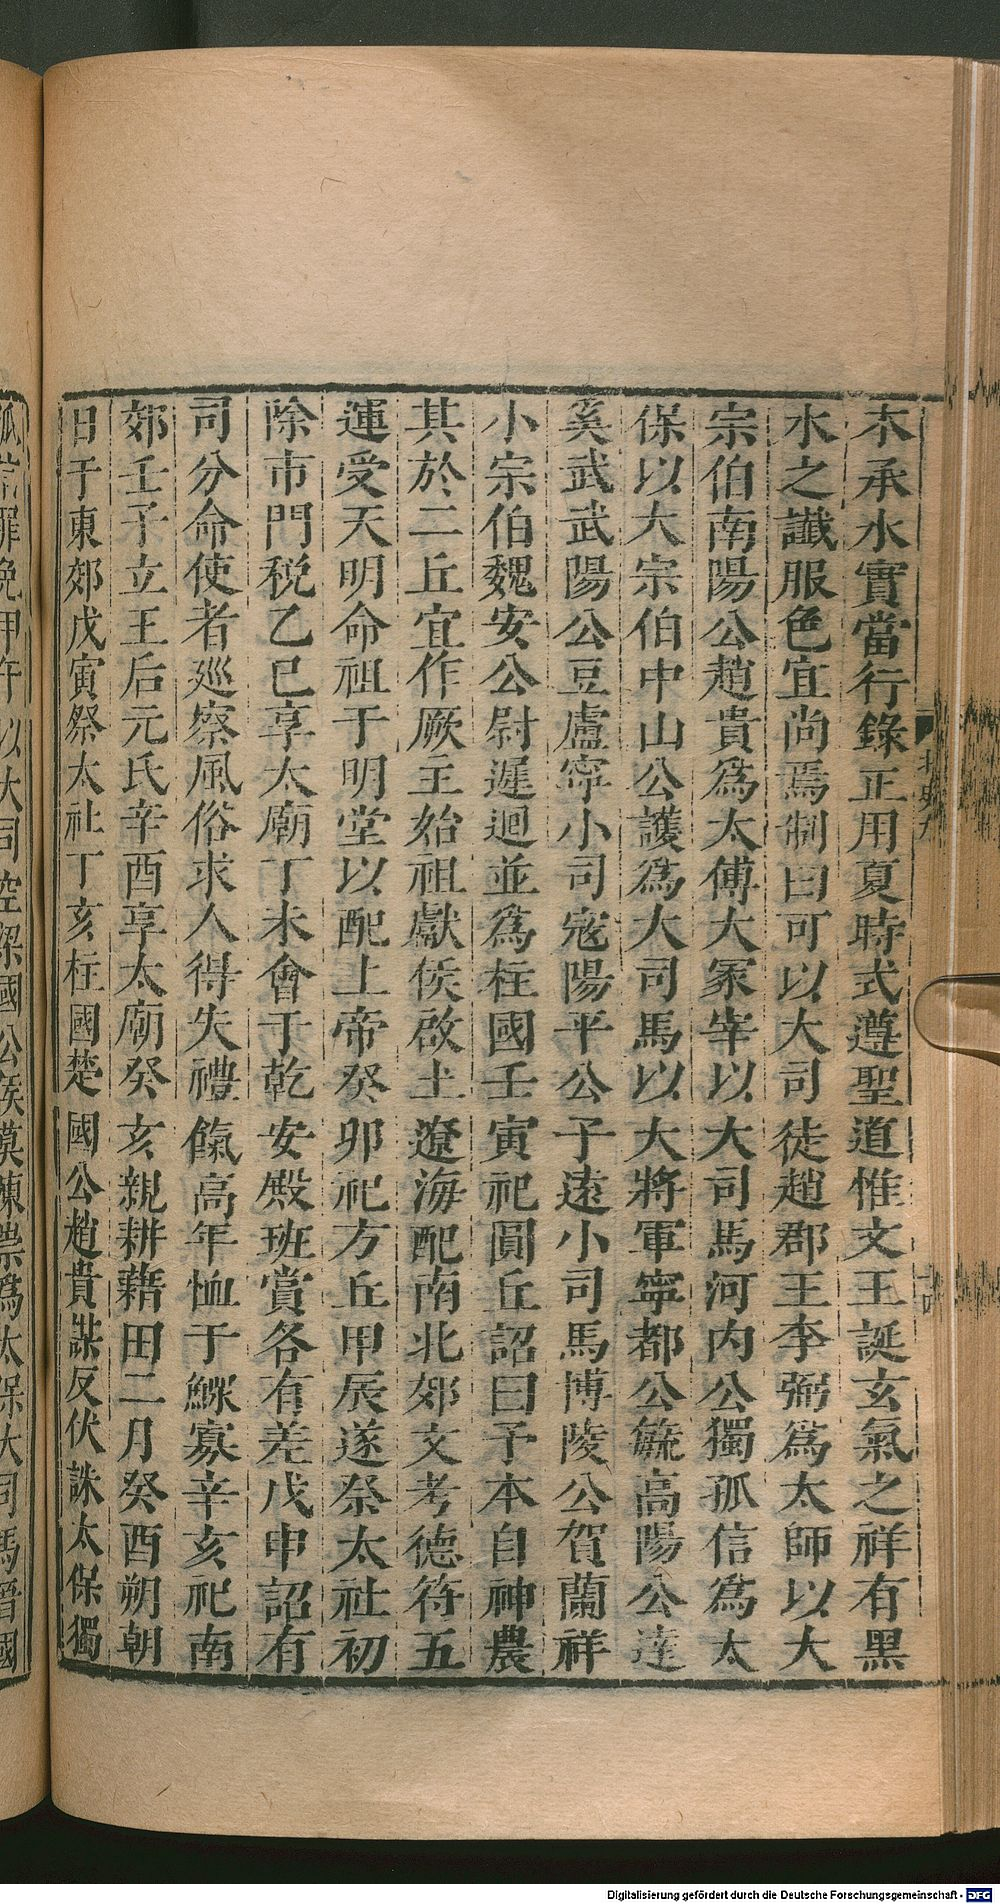 木承水實當行錄正用夏時式遵聖道惟文王誕玄氣之祥有黑
水之讖服色宜尚焉制曰可以大司徒趙郡王李弼為太師以大
宗伯南陽公趙貴為太傅大冢宰以大司馬河內公獨孤信為太
保以大宗伯中山公護為大司馬以大將軍寧都公毓高陽公達
奚武武陽公豆盧寧小司寇陽平公子遠小司馬博陵公賀蘭祥
小宗伯魏安公尉遲迴並為柱國壬寅祀圓丘詔曰予本自神農
其於二丘宜作厥主始祖獻侯啟土遼海配南北郊文考德符五
運受天明命祖于明堂以配上帝癸卯祀方丘甲辰遂祭太社初
除市門稅乙巳享太廟丁未會于乾安殿班賞各有差戊申詔有
司分命使者巡察風俗求人得失禮餼高年恤于鰥寡辛亥祀南
郊壬子立王后元氏辛酉享太廟癸亥親耕藉田二月癸酉朔朝
日于東郊戊寅祭太社丁亥柱國楚國公趙貴謀反伏誅太保獨
孤信罪免甲午以大司空梁國公侯莫陳崇為太保大司馬晉國
北史九
十四
Digitalisierung gefördert durch die Deutsche Forschungsgemeinschaft - DFG